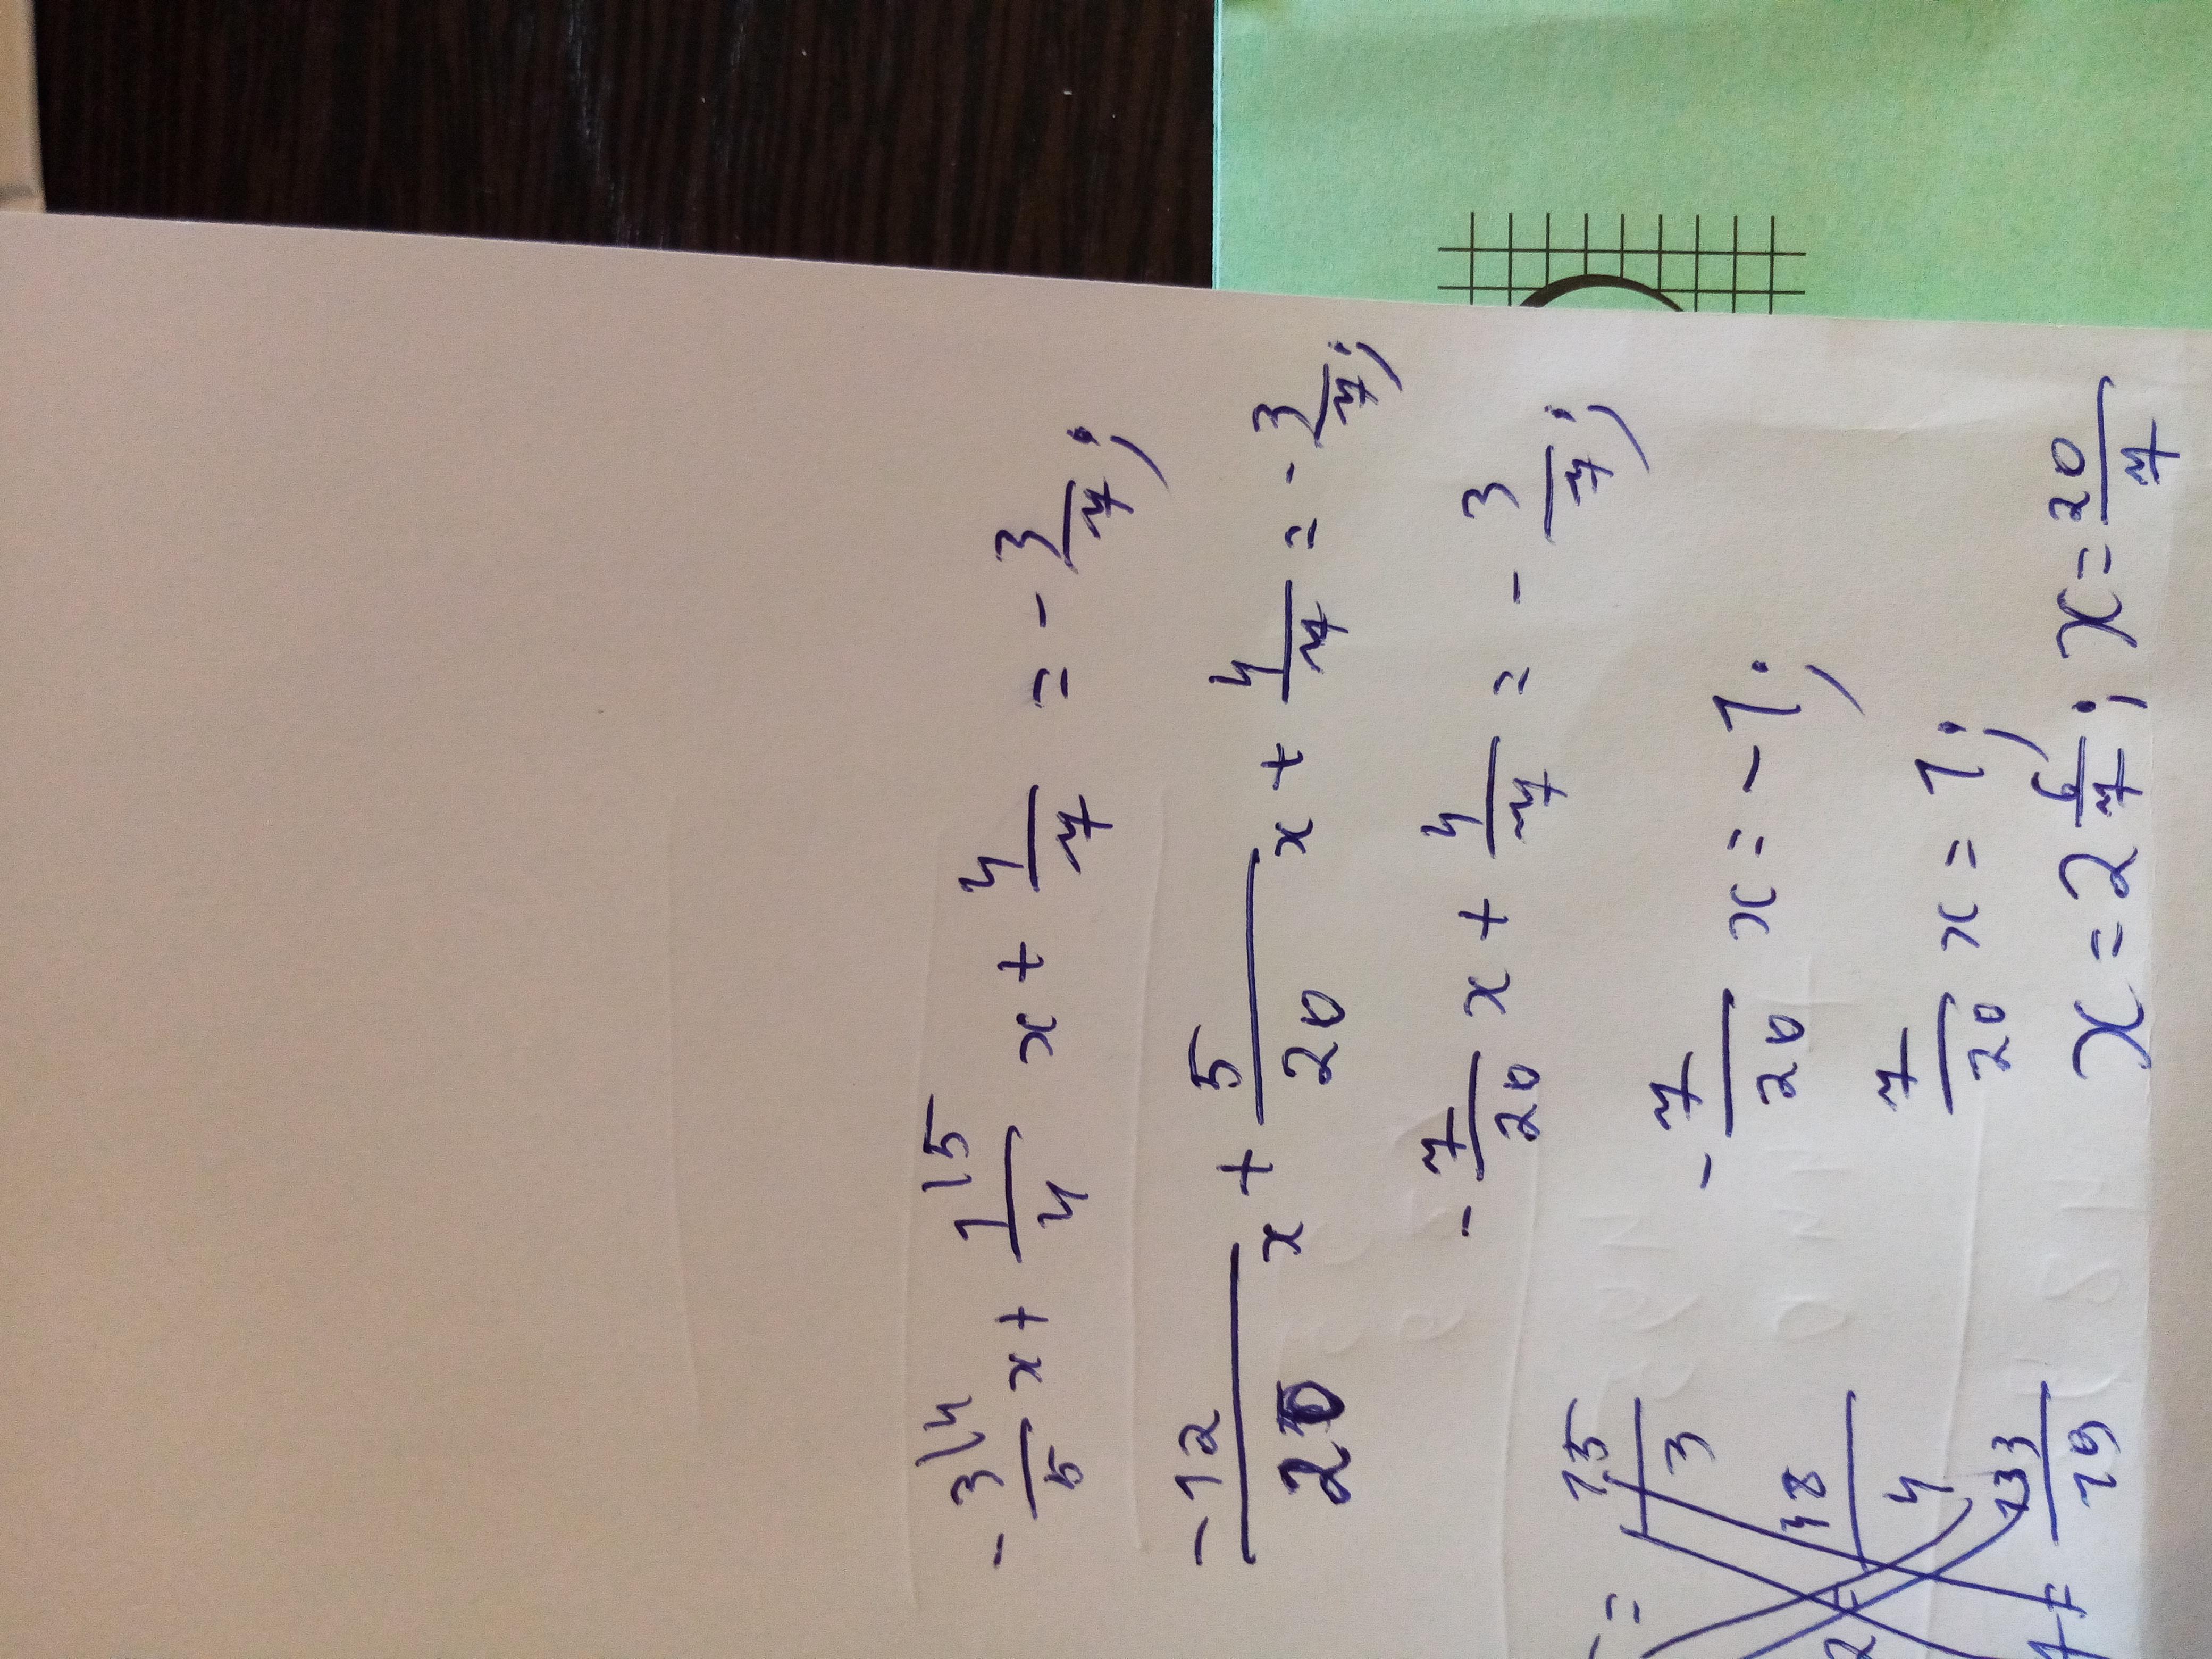 -3/5 \4 x + 1/4 \5 x + 4/7 = - 3/7;
-12/20 x + 5/20 x + 4/7 = - 3/7;
- 7/20 x + 4/7 = - 3/7;
- 7/20 x = -1;
7/20 x = 1;
x = 2 6/7; x = 20/7
=
15/3
48/4
13/19